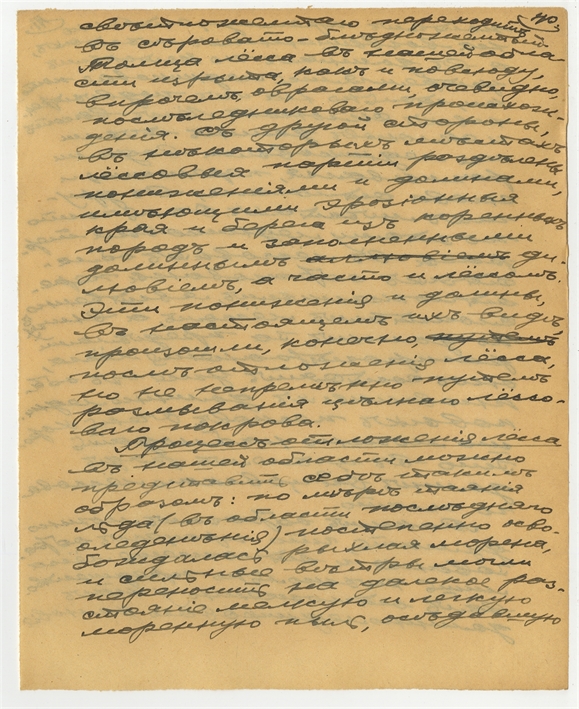 110.
свѣтложелтаго переходитъ
въ сѣровато-блѣдножелтый.
Толща лёсса въ нашей обла-
сти изрыта, какъ и повсюду,
впрочемъ, оврагами, очевидно,
послѣледниковаго происхож-
денія. Съ другой стороны,
въ нѣкоторыхъ мѣстахъ
лёссовыя партіи раздѣлены
пониженіями и долинами,
имѣющими эрозіонныя
края и берега изъ коренныхъ
породъ и заполненными
долиннымъ аллювіемъ ди-
лювіемъ, а часто и лёссомъ.
Эти пониженія и долины,
въ настоящемъ ихъ видѣ,
произошли, конечно, путемъ
послѣ отложенія лёсса,
но не непремѣнно путемъ
размыванія цѣльнаго лёссо-
ваго покрова.
Процессъ отложенія лёсса
въ нашей области можно
представить себѣ такимъ
образомъ: по мѣрѣ таянія
льда (въ области послѣдняго
оледенѣнія) постепенно осво-
бождалась рыхлая морена,
и сильные вѣтры могли
переносить на далекое раз-
стояніе мелкую и легкую
моренную пыль, осѣдавшую